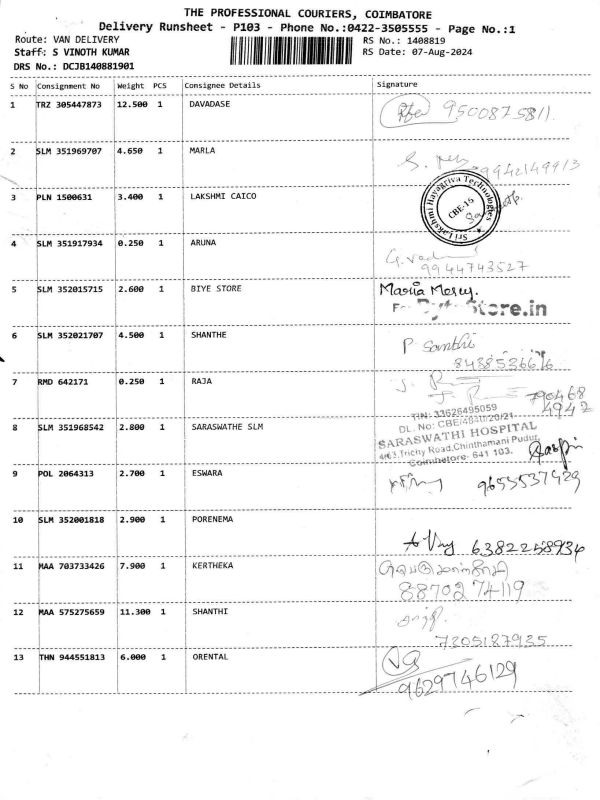 THE PROFESSIONAL COURIERS, COIMBATORE
Delivery Runsheet - P103 - Phone No.:0422-3505555 - Page No.:1
Route: VAN DELIVERY RS No.: 1408819
Staff: S VINOTH KUMAR RS Date: 07-Aug-2024
DRS No.: DCJB140881901
S No Consignment No Weight PCS Consignee Details Signature
1 TRZ 305447873 12.500 1 DAVADASE
9500875811.
2 SLM 351969707 4.650 1 MARLA
9942149913
3 PLN 1500631 3.400 1 LAKSHMI CAICO
Sri Lakshmi Hayagriva Technologies
CBE-15
4 SLM 351917934 0.250 1 ARUNA
9944743527
5 SLM 352015715 2.600 1 BIYE STORE
Maria Mercy.
Store.in
6 SLM 352021707 4.500 1 SHANTHE
P Santhi
8438536676
7 RMD 642171 0.250 1 RAJA
790468
4942
8 SLM 351968542 2.800 1 SARASWATHE SLM
TIN: 33626495059
DL. No: CBE/4840/20/21
SARASWATHI HOSPITAL
4/63, Trichy Road, Chinthamani Pudur,
Coimbatore- 641 103.
9 POL 2064313 2.700 1 ESWARA
9655537429
10 SLM 352001818 2.900 1 PORENEMA
6382258934
11 MAA 703733426 7.900 1 KERTHEKA
8870274119
12 MAA 575275659 11.300 1 SHANTHI
7205187935
13 THN 944551813 6.000 1 ORENTAL
9629746129